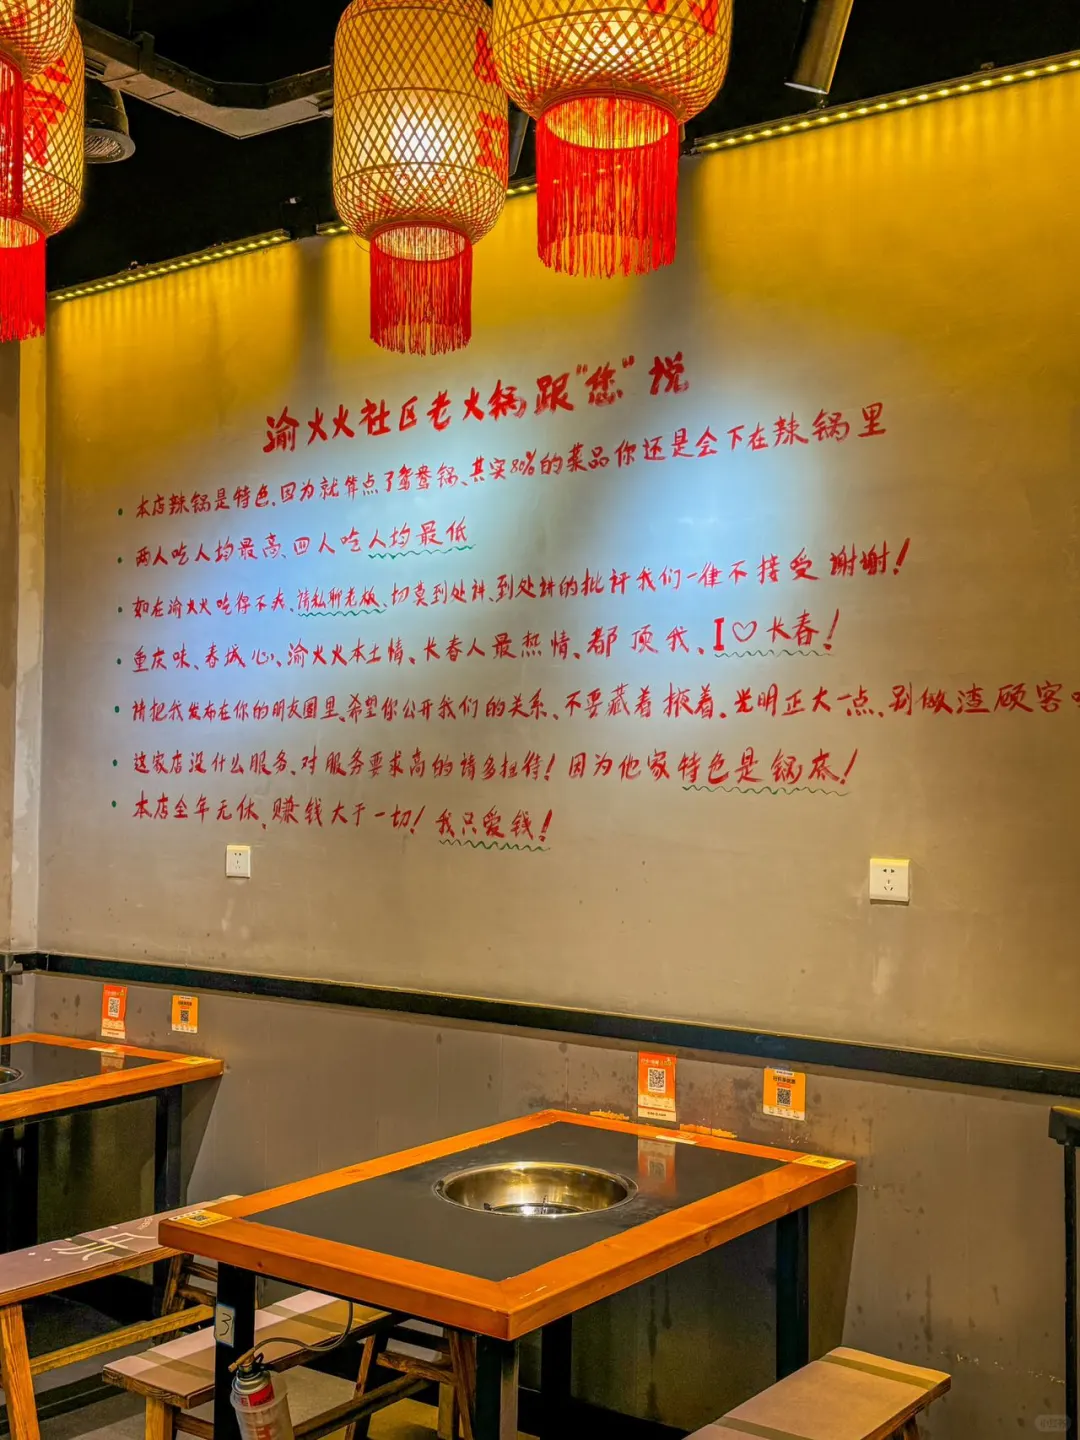 渝火火社区老火锅跟"您"悦
本店辣锅是特色、因为就算点了鸳鸯锅、其实80%的菜品你还是会下在辣锅里
两人吃人均最高、四人吃人均最低
如在渝火火吃得不爽、请私聊老板、切莫到处讲、到处讲的批评我们一律不接受 谢谢!
重庆味、春城心、渝火火本土情、长春人最热情、都顶我、I♡长春!
请把我发布在你的朋友圈里、希望你公开我们的关系、不要藏着掖着。光明正大一点、别做渣顾客
这家店没什么服务、对服务要求高的请多担待! 因为他家特色是锅底!
本店全年无休、赚钱大于一切! 我只爱钱!
3
小红书